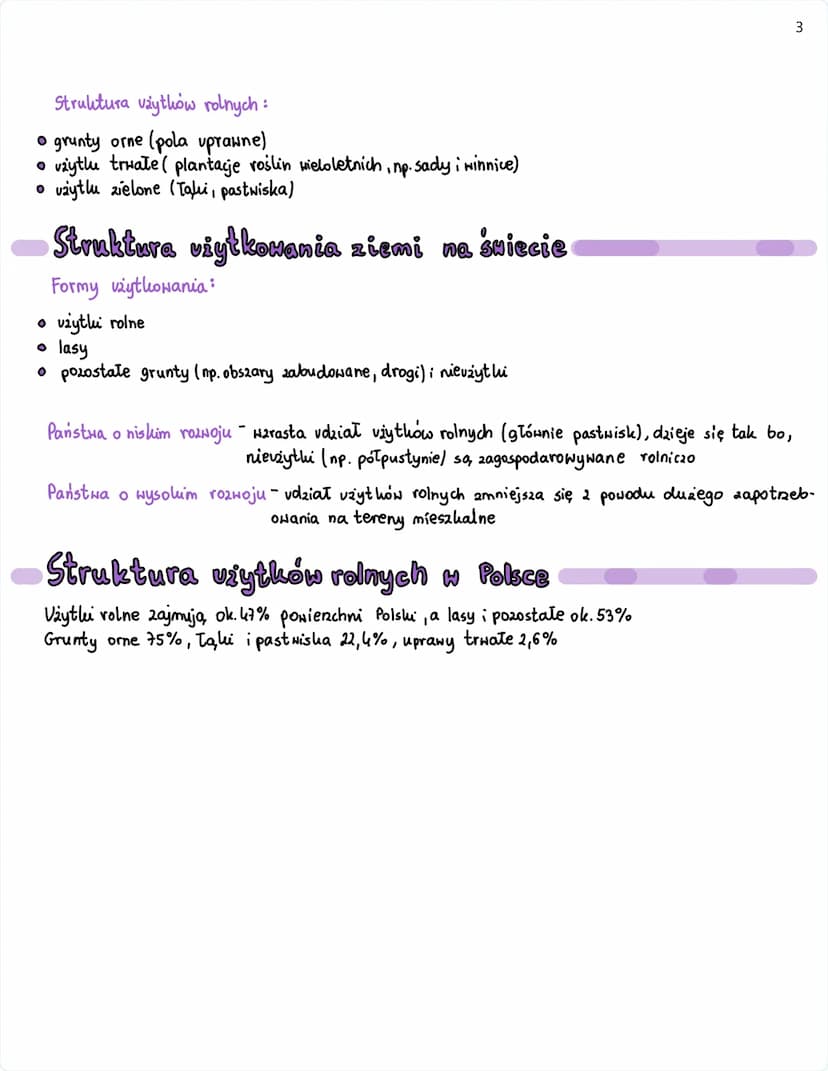 3
Struktura użytków rolnych:
grunty orne (pola uprawne)
użytki trwałe (plantacje roślin wieloletnich, np. sady i winnice)
użytki zielone (łąki, pastwiska)
Struktura użytkowania ziemi na świecie
Formy użytkowania:
użytki rolne
lasy
pozostałe grunty (np. obszary zabudowane, drogi) i nieużytki
Państwa o niskim rozwoju - wzrasta udział użytków rolnych (głównie pastwisk), dzieje się tak bo,
nieużytki (np. półpustynie) są zagospodarowywane rolniczo
Państwa o wysokim rozwoju - udział użytków rolnych zmniejsza się z powodu dużego zapotrzeb-
owania na tereny mieszkalne
Struktura użytków rolnych w Polsce
Użytki rolne zajmują ok. 47% powierzchni Polski, a lasy i pozostałe ok. 53%
Grunty orne 75%, łąki i pastwiska 22,4%, uprawy trwałe 2,6%